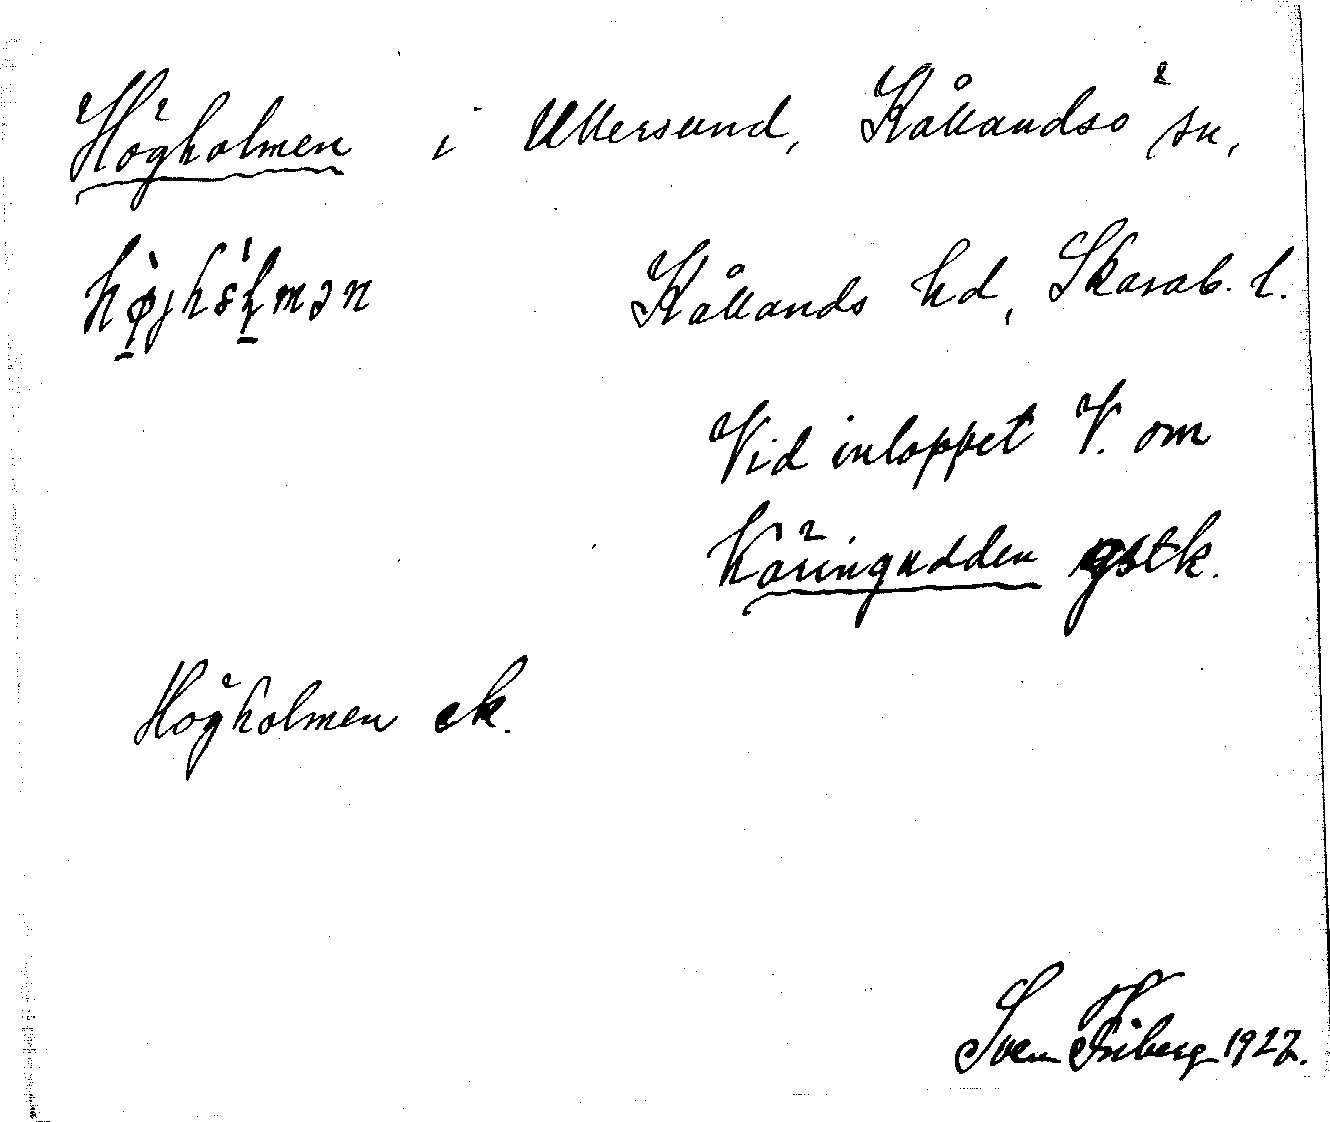 Högholmen i Ullersund, Kållandsö sn,
Kållands hd, Skarab. l.
Vid inloppet V. om
Käringudden gstk.
Högholmen ek.
Sven Friberg 1927.